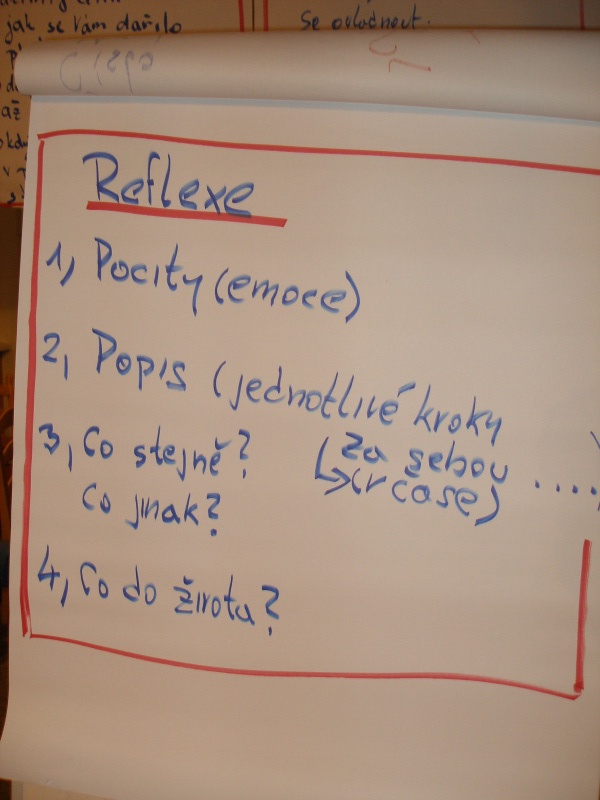 jak se Vám dařilo
se ovládnout.
až
Reflexe
1, Pocity (emoce)
2, Popis (jednotlivé kroky
za sebou ....)
(v case)
3, Co stejně?
Co jinak?
4, Co do života?